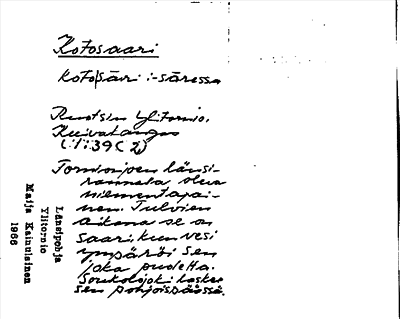 Kotosaari
kotosāri :-sāressa
Ruotsin Ylitornio.
Kuivakangas
(:1:39 (2)
Tornionjoen länsi-
rannalla oleva
niementapai-
nen. Tulvien
aikana se on
saari, kun vesi
ympäröi sen
joka puolelta.
Soukolojoki laskee
sen pohjoispäässä.
Länsipohja
Ylitornio
Maija Kainulainen
1966